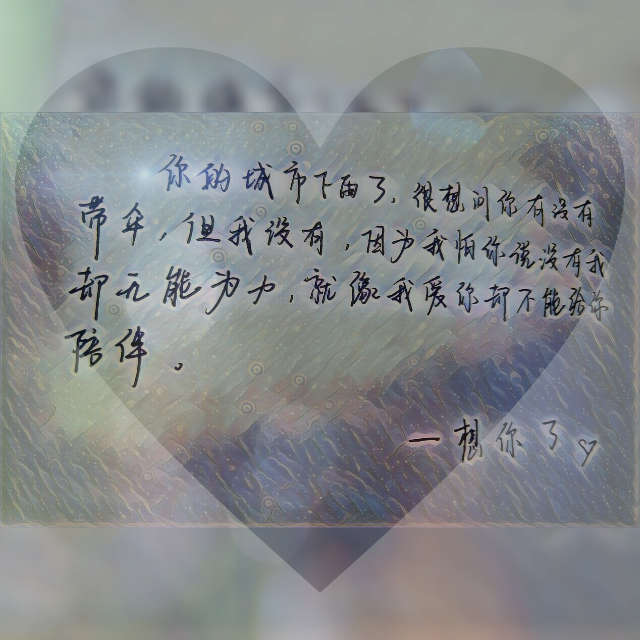 你的城市下雨了，很想问你有没有
带伞，但我没有，因为我怕你说没有我
却无能为力，就像我爱你却不能给你
陪伴。
一想你了♡